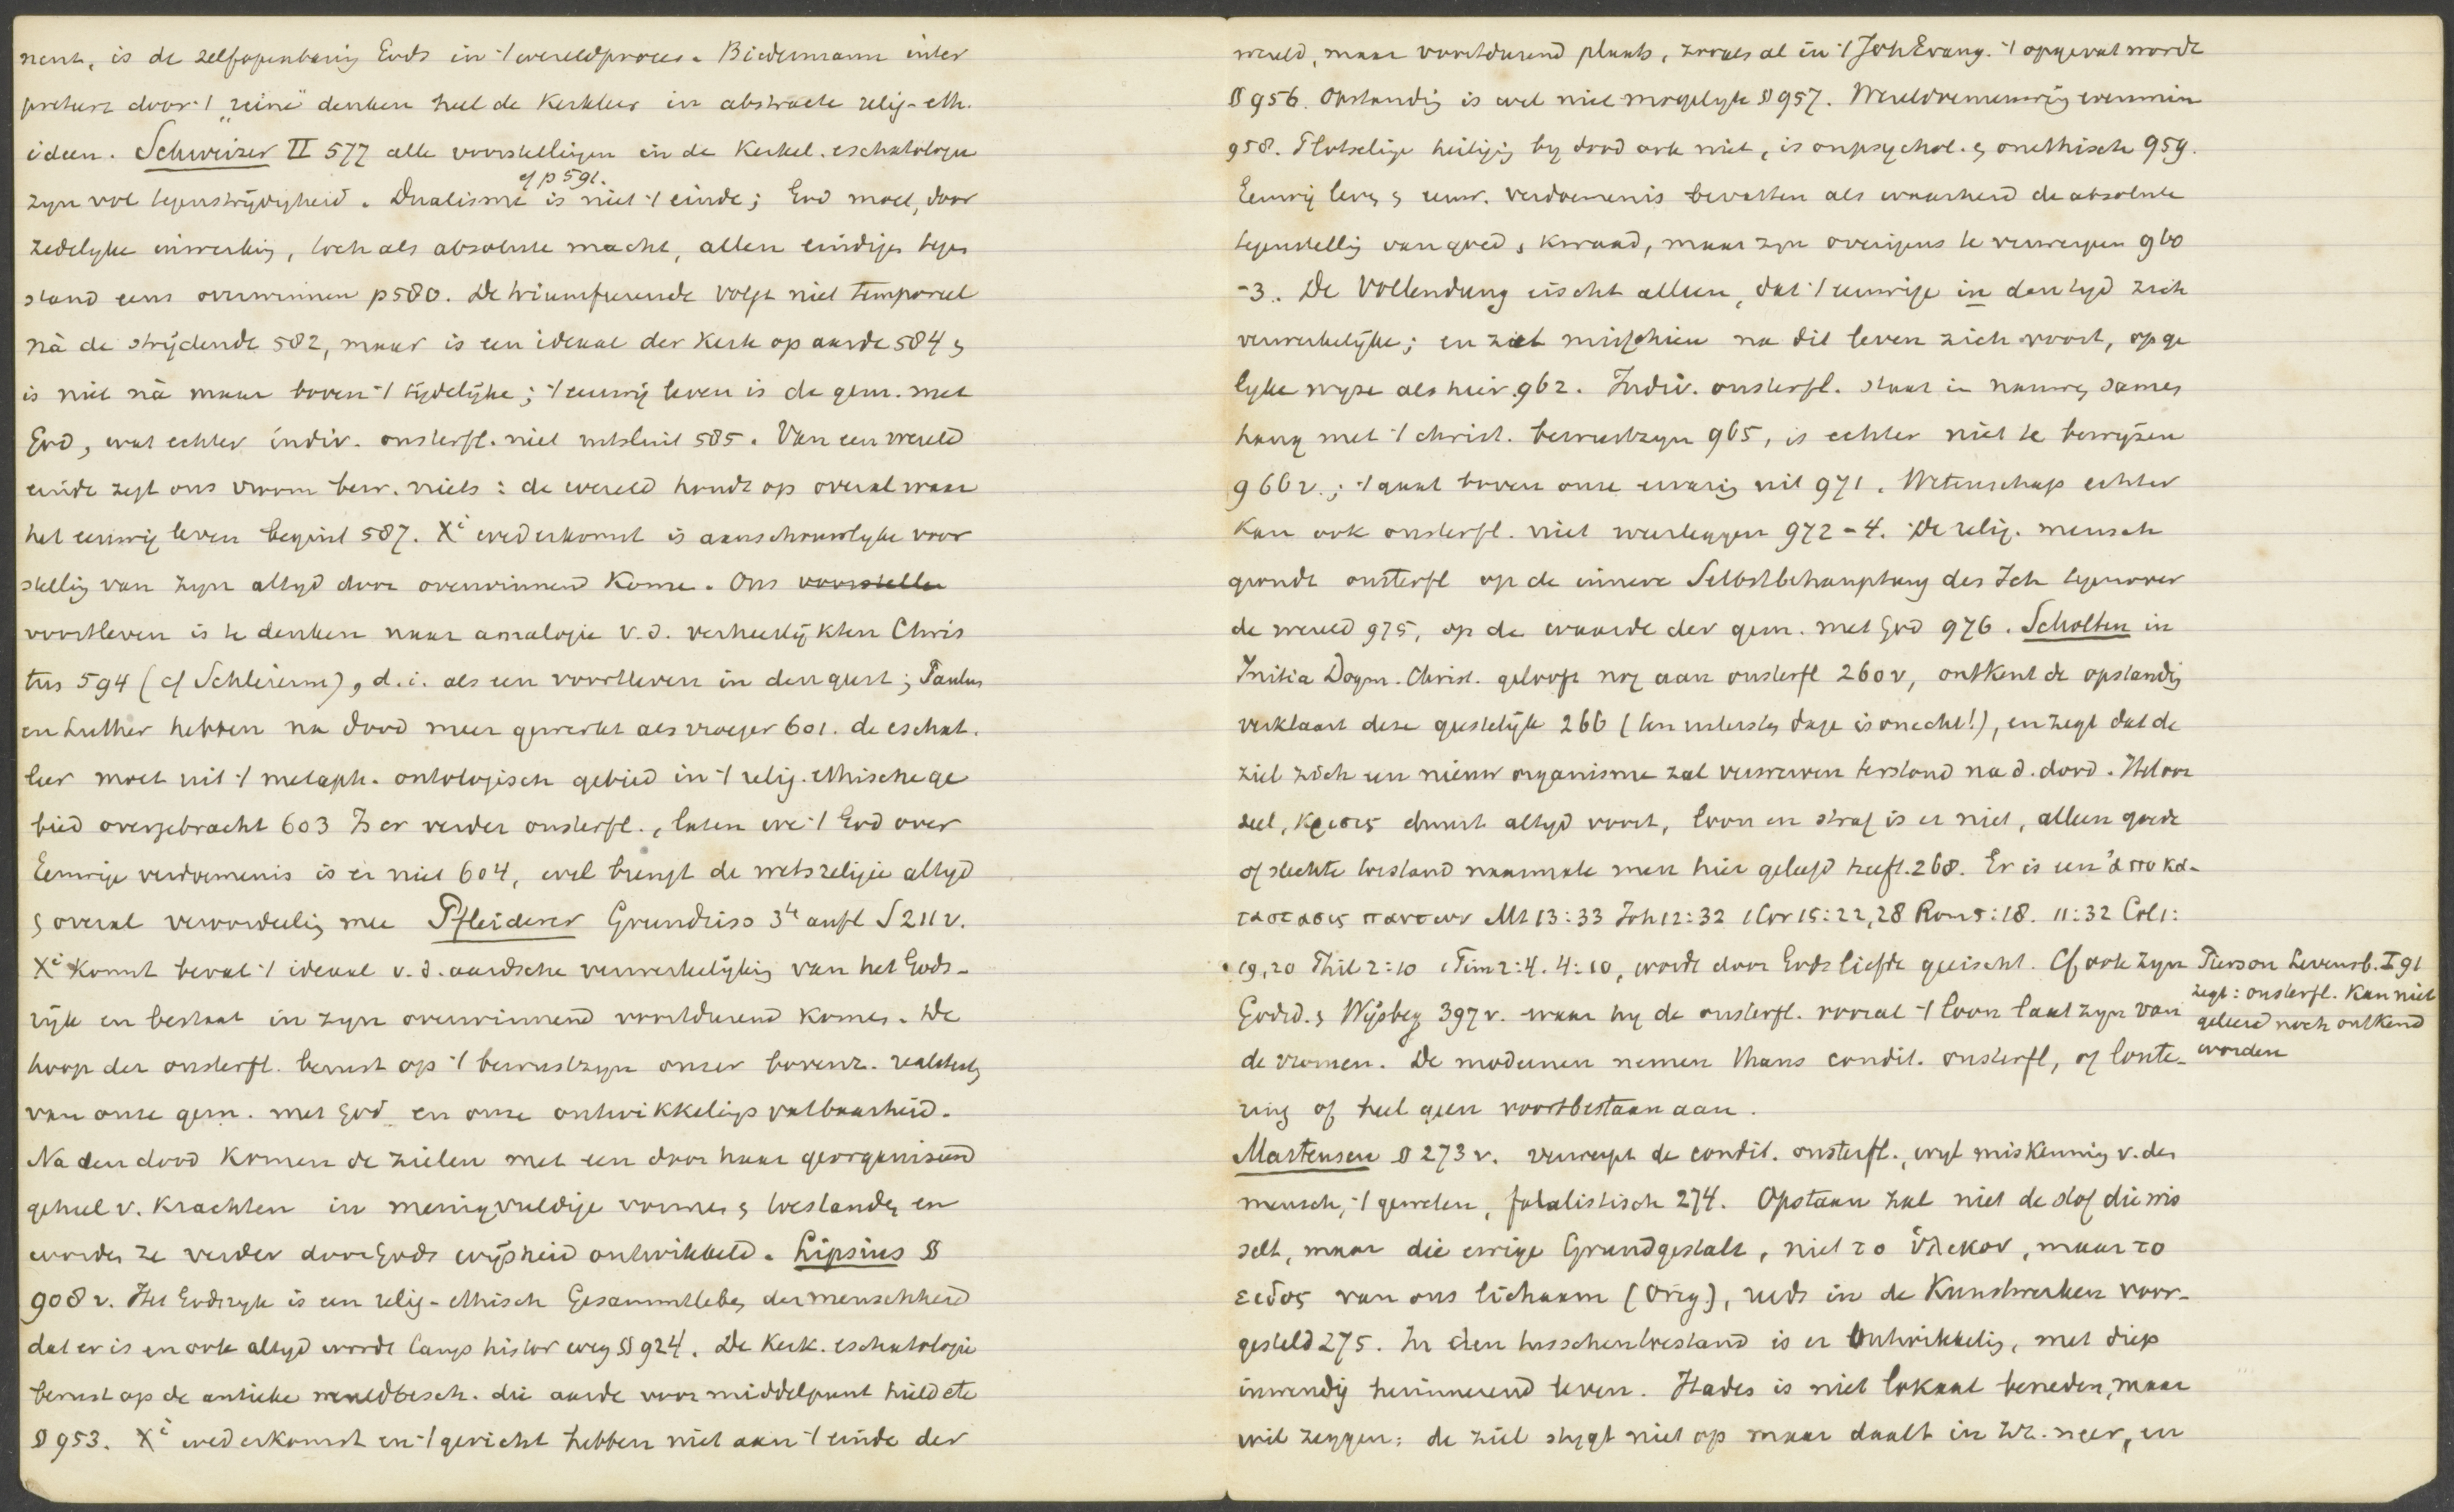 nent, is de zelfopenbaring Gods in 't wereldproces. Biedermann inter
preteert door 't „reine" denken heel de Kerkleer in abstracte relig-eth.
ideen. Schweizer II 577 alle voorstellingen in de Kerkel. eschatologie
cf p 591.
zyn vol tegenstrijdigheid. Dualisme is niet 't einde; God moet, door
zedelyke inwerking, toch als absolute macht, allen eindigen tegen
stand eens overwinnen p 580. De triumfeerende volgt niet temporeel
nà de strijdende 582, maar is een ideaal der Kerk op aarde 584 &
is niet nà maar boven 't tijdelijke; 't eeuwig leven is de gem. met
God, wat echter indiv. onsterfl. niet uitsluit 585. Van een wereld
einde zegt ons vroom bew. niets: de wereld houdt op overal waar
het eeuwig leven begint 587. Xi wederkomst is aanschouwelyke voor
stelling van zyn altyd door overwinnend Komen. Ons voorstellen
voortleven is te denken naar analogie v.d. verheerlijkten Chris
tus 594 (cf Schleierm), d.i. als een voortleven in den geest; Paulus
en Luther hebben na dood meer gewerkt als vroeger 601. de eschat.
leer moet uit 't metaph. ontologisch gebied in 't relig. ethische ge
bied overgebracht 603 Is er verder onsterfl., laten we 't God over
Eeuwige verdoemenis is er niet 604, wel brengt de wetsreligie altyd
& overal veroordeeling mee Pfleiderer Grundriss 3te aufl § 211 v.
Xi Komst bevat 't ideaal v.d. aardsche verwerkelijking van het Gods-
rijk en bestaat in zyn overwinnend voortdurend komen. De
hoop der onsterfl. berust op 't bewustzyn onzer bovenz. realiteit,
van onze gem. met God en onze ontwikkelings vatbaarheid.
Na den dood Komen de zielen met een door haar georganiseerd
geheel v. Krachten in menigvuldige vormen & toestanden en
worden ze verder door Gods wijsheid ontwikkeld. Lipsius §
908 v. Het Godsryk is een relig-ethisch Gesammtleben der menschheid
dat er is en ook altyd wordt langs histor weg § 924. De Kerk. eschatologie
berust op de antieke wereldbesch. die aarde voor middelpunt hield etc
§ 953. Xi wederkomst en 't gericht hebben niet aan 't einde der
wereld, maar voortdurend plaats, zooals al in 't Joh Evang. 't opgevat wordt
§ 956. Opstanding is wel niet mogelyk § 957. Wereldvernieuwing evenmin
958. Plotselinge heiliging by dood ook niet, is onpsychol. & onethisch 959.
Eeuwig leven & eeuw. verdoemenis bevatten als waarheid de absolute
tegenstelling van goed & kwaad, maar zyn overigens te verwerpen 960
-3. De Vollendung eischt alleen, dat 't eeuwige in den tyd zich
verwerkelijke; en zet misschien na dit leven zich voort, op ge
lyke wyze als hier 962. Indiv. onsterfl. staat in nauwen samen
hang met 't christ. bewustzyn 965, is echter niet te bewyzen
966 v.; 't gaat boven onze ervaring uit 971. Wetenschap echter
Kan ook onsterfl. niet weerleggen 972-4. De relig. mensch
grondt onsterfl op de innere Selbstbehauptung des Ich tegenover
de wereld 975, op de waarde der gem. met God 976. Scholten in
Initia Dogm. Christ. gelooft nog aan onsterfl 260 v, ontkent de opstanding
verklaart deze geestelijk 266 (ten uitersten dage is onecht!), en zegt dat de
ziel zich een nieuw organisme zal verwerven terstond na d. dood. Het oor
deel, κρισις duurt altyd voort, loon en straf is er niet, alleen goede
of slechte toestand naarmate men hier geleefd heeft. 268. Er is een ἀποκα-
ταστασις παντων Mt 13:33 Joh 12:32 1 Cor 15:22,28 Rom 5:18. 11:32 Col 1:
19,20 Phil 2:10 1 Tim 2:4. 4:10, wordt door Gods liefde geeischt. Cf ook zyn
Godsd. & Wijsbeg 397 v. waar hy de onsterfl. vooral 't loon laat zyn van
de vromen. De modernen nemen thans condit. onsterfl, of loute-
ring of heel geen voortbestaan aan.
Pierson Levensb. I 91
zegt: onsterfl. Kan niet
geleerd noch ontkend
worden
Martensen § 273 v. verwerpt de condit. onsterfl., wyl miskenning v. den
mensch, 't geweten, fatalistisch 274. Opstaan zal niet de stof die wis
selt, maar die ewige Grundgestalt, niet το ὑλικον, maar το
ειδος van ons lichaam (Orig), reeds in de Kunstwerken voor-
gesteld 275. In den tusschentoestand is er Ontwikkeling, met diep
inwendig herinnerend leven. Hades is niet lokaal beneden, maar
wil zeggen: de ziel stygt niet op maar daalt in zich neer, en